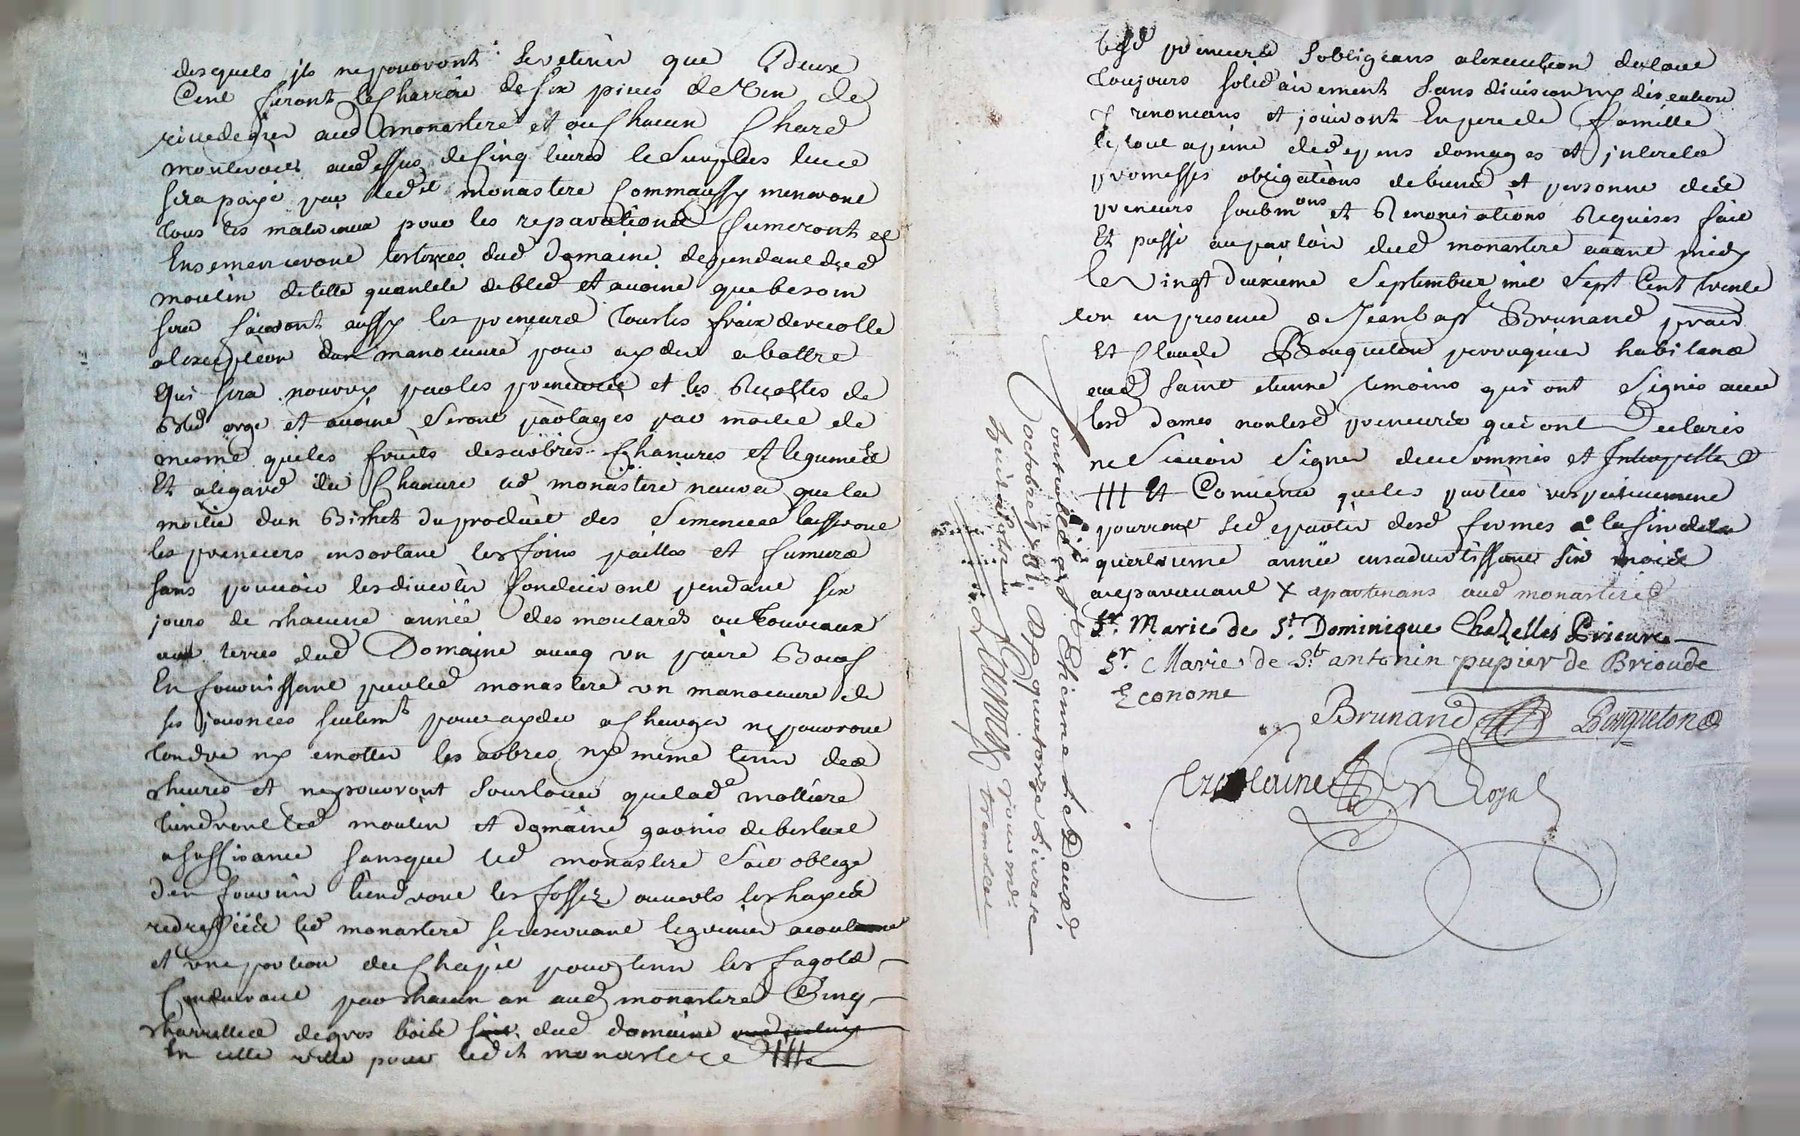 desquels ils ne pouvront se retenir que Deux
Cent feront le Charroi de six pieces de vin de
rivedegier aud monastere et ou Chacun Chard
monteroit audessus de Cinq livres le surplus luce
sera payé par led monastere Commaussy meneront
tous les materiaux pour les reparations fumeront et
Ensemenceront les terres dud Domaine dependant dud
moulin de telle quantité de bled et avoine que besoin
sera fairont aussy les preneurs tous les fraix de recolte
alexeption dun manoeuvre pour ayder a battre
Qui sera nourry par les preneurs et les Recoltes de
Bled orge et avoine seront partagés par moitié de
mesme que les fruits des arbres Chanvres et legumes
Et alegard du Chanvre led monastere naura que la
moitié dun Bichet du produit des semences laisseront
les preneurs en sortant les foins pailles et fumiers
sans pouvoir les divertir Conduiront pendant six
jours de chacune année des
aux terres dud Domaine avec un paire Boeufs
En fournissant par led monastere un manoeuvre de
ses journées seulemt pour ayder a Charger ne pouvront
tondre ny emotter les arbres ny meme tenir des
chevres et ne pouvront souslouer que lad mottiere
tiendront led moulin et domaine garnis de bestail
a suffisance sans que led monastere soit obligé
den fournir tiendront les fossez ouverts les hayes
redressées led monastere se reservant le grenier
et une portion du Chapit pour tenir les fagots
Conduiront par chacun an aud monastere Cinq
charrettes de gros bois dud domaine
En cette ville pour ledit monastere
lesd preneurs sobligeans alexecution
toujours solidairement sans division ny discution
y renoncans et jouiront En pere de famille
le tout a peine de depens domages et interets
promesses obligations de biens et personne desd
preneurs soubmons et Renonciations Requises fait
Et passé au parloir dud monastere avant midy
le Vingt deuxieme Septembre mil Sept Cent trente
en presence de Jean bapt Brunand prat
Et Claude Bouqueton perruquier habitans
aud saint etienne temoins qui ont Signés avec
lesd dames non lesd preneurs qui ont Declarés
ne scavoir signer deue sommés et Interpellés
Et Convenu que les parties respectivement
pourront se departir desd fermes a la fin de la
quatrieme année en sadvertissant six mois
auparavant X apartenans aud monastere
Sr. Marie de St. Dominique Chazelles Prieure
Sr Marie de St antonin pupier de Brioude
Econome
Brunand Bouqueton
Royal
Controllé a St Ethienne le Deux
octobre 1731. R quatorze livres